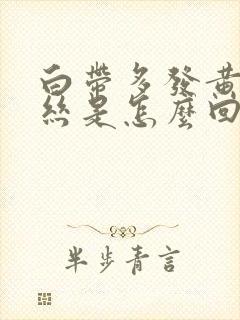 白帶多發黃
絲是怎麼回
半步青言